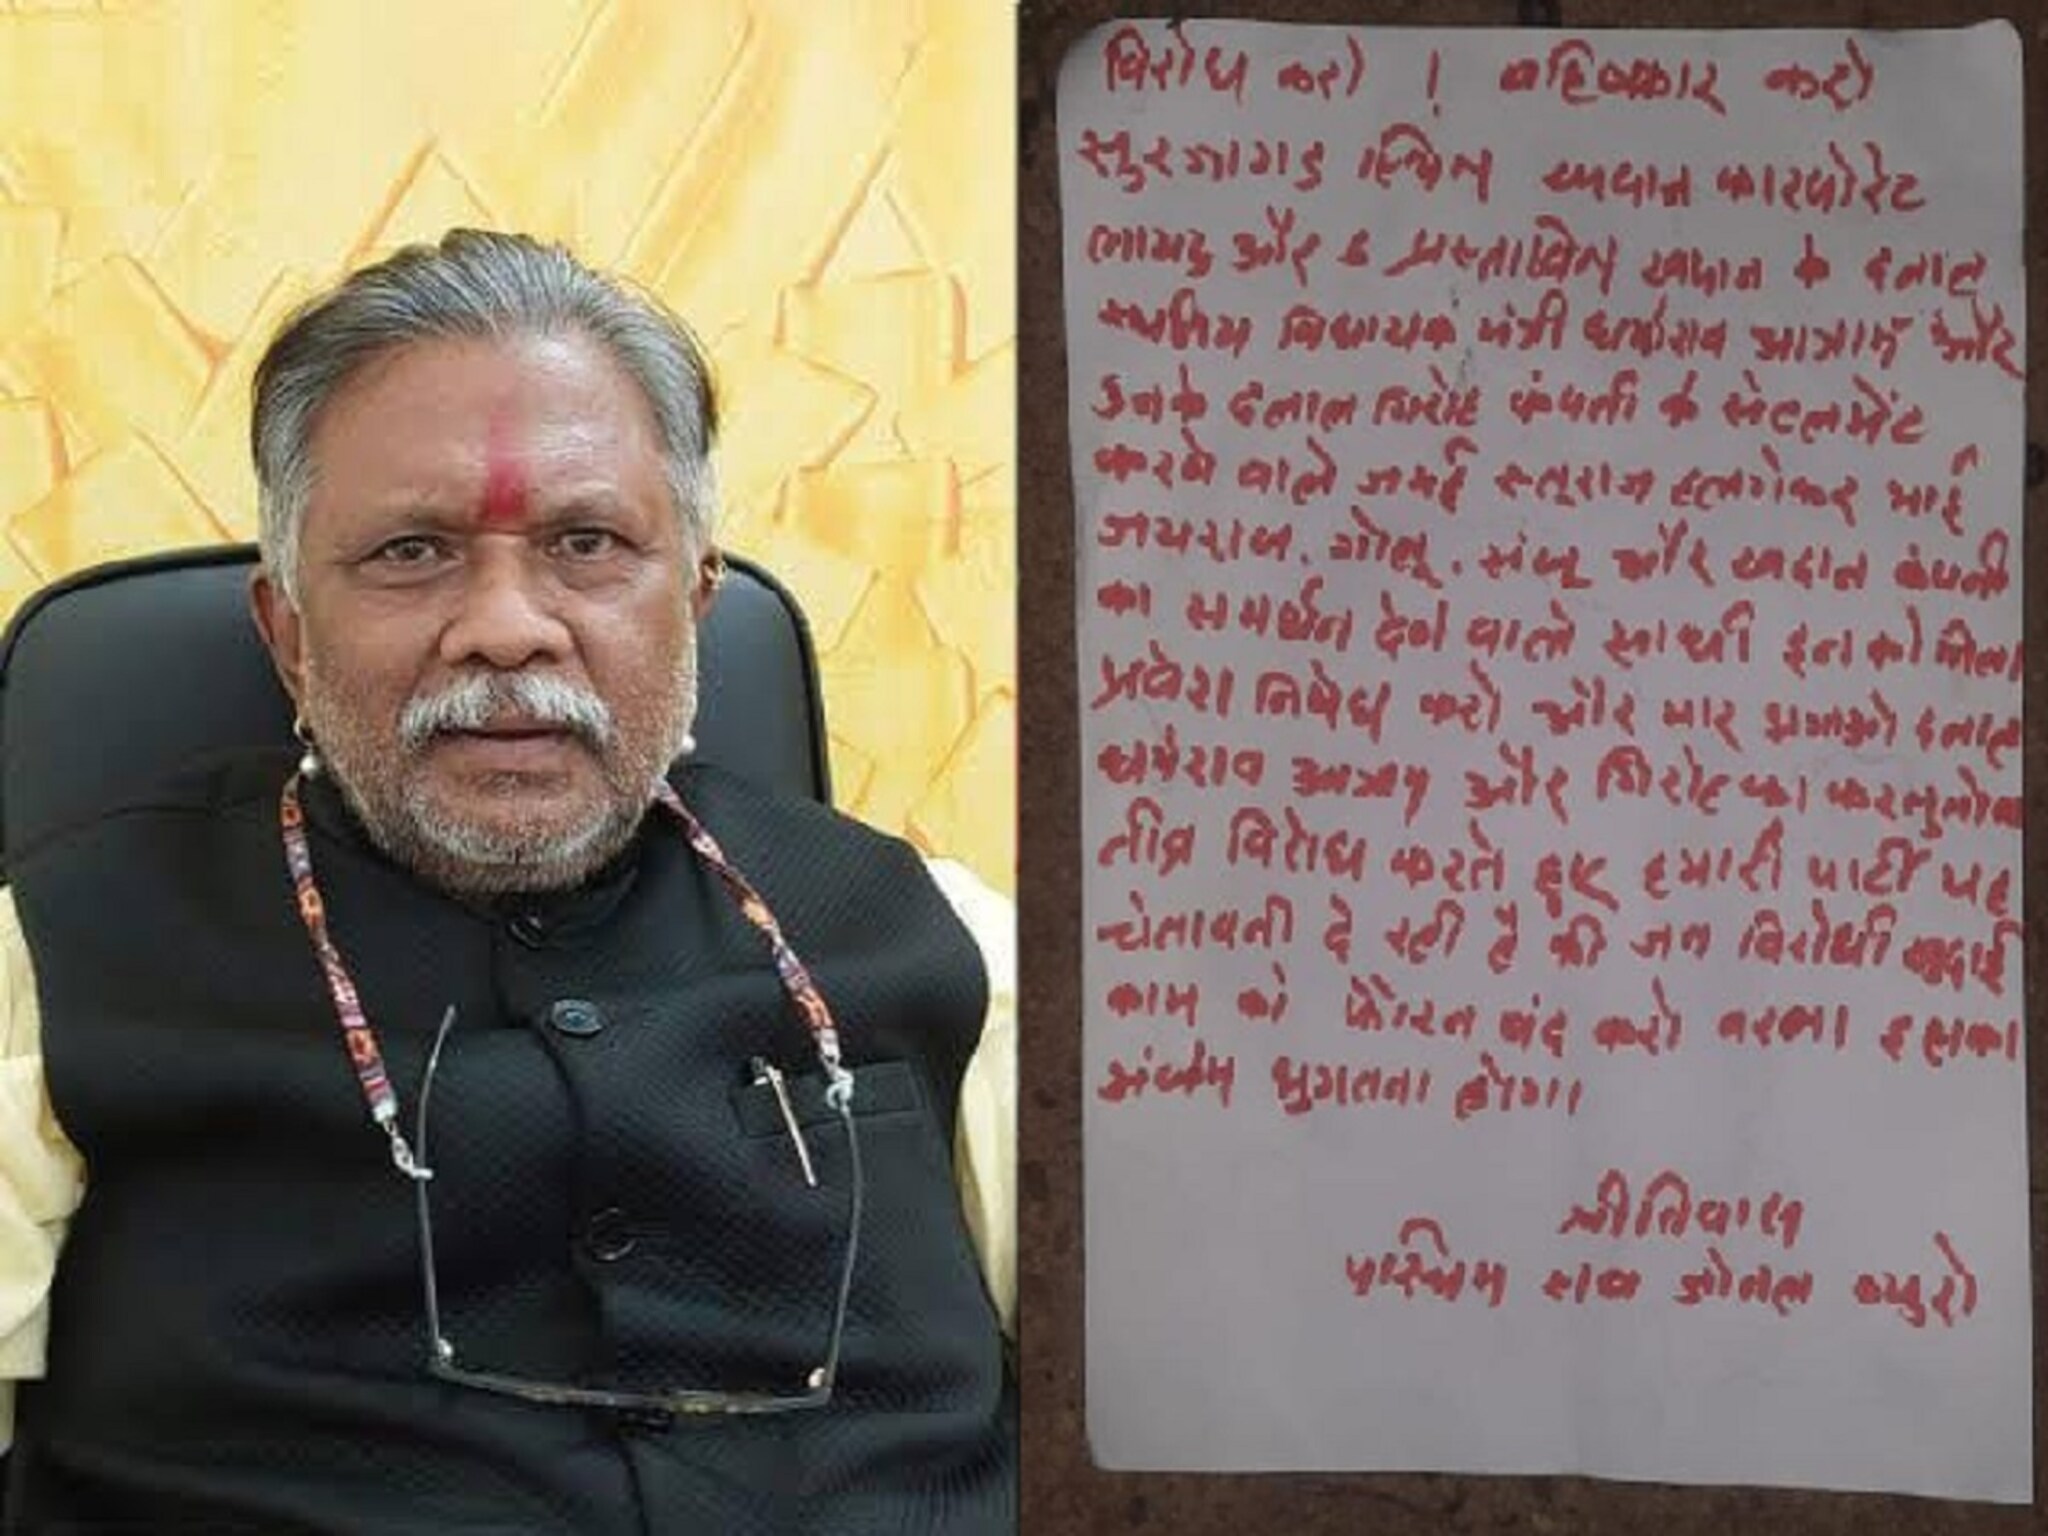 विरोध करो ! बहिष्कार करो
सुरजागड स्थित खदान कारपोरेट
लायड और 6 प्रस्तावित खदान के दलाल
स्थानिय विधायक मंत्री धर्मराव आत्राम और
उनके दलाल गिरोह कंपनी के सेटलमेंट
करने वाले जमाई रूतुराज हलगेकर भाई
जयराज. गोलू. संजू और खदान कंपनी
का समर्थन देने वाले साथी इनको जिला
प्रवेश निषेध करो और मार भगाओ दलाल
धर्मराव आत्राम और गिरोह का करतुतोका
तीव्र विरोध करते हुए हमारी पार्टी यह
चेतावनी दे रही है की जन विरोधी खुदाई
काम को फौरन बंद करो वरना इसका
अंजाम भुगतना होगा
श्रीनिवास
पश्चिम सब जोनल ब्युरो